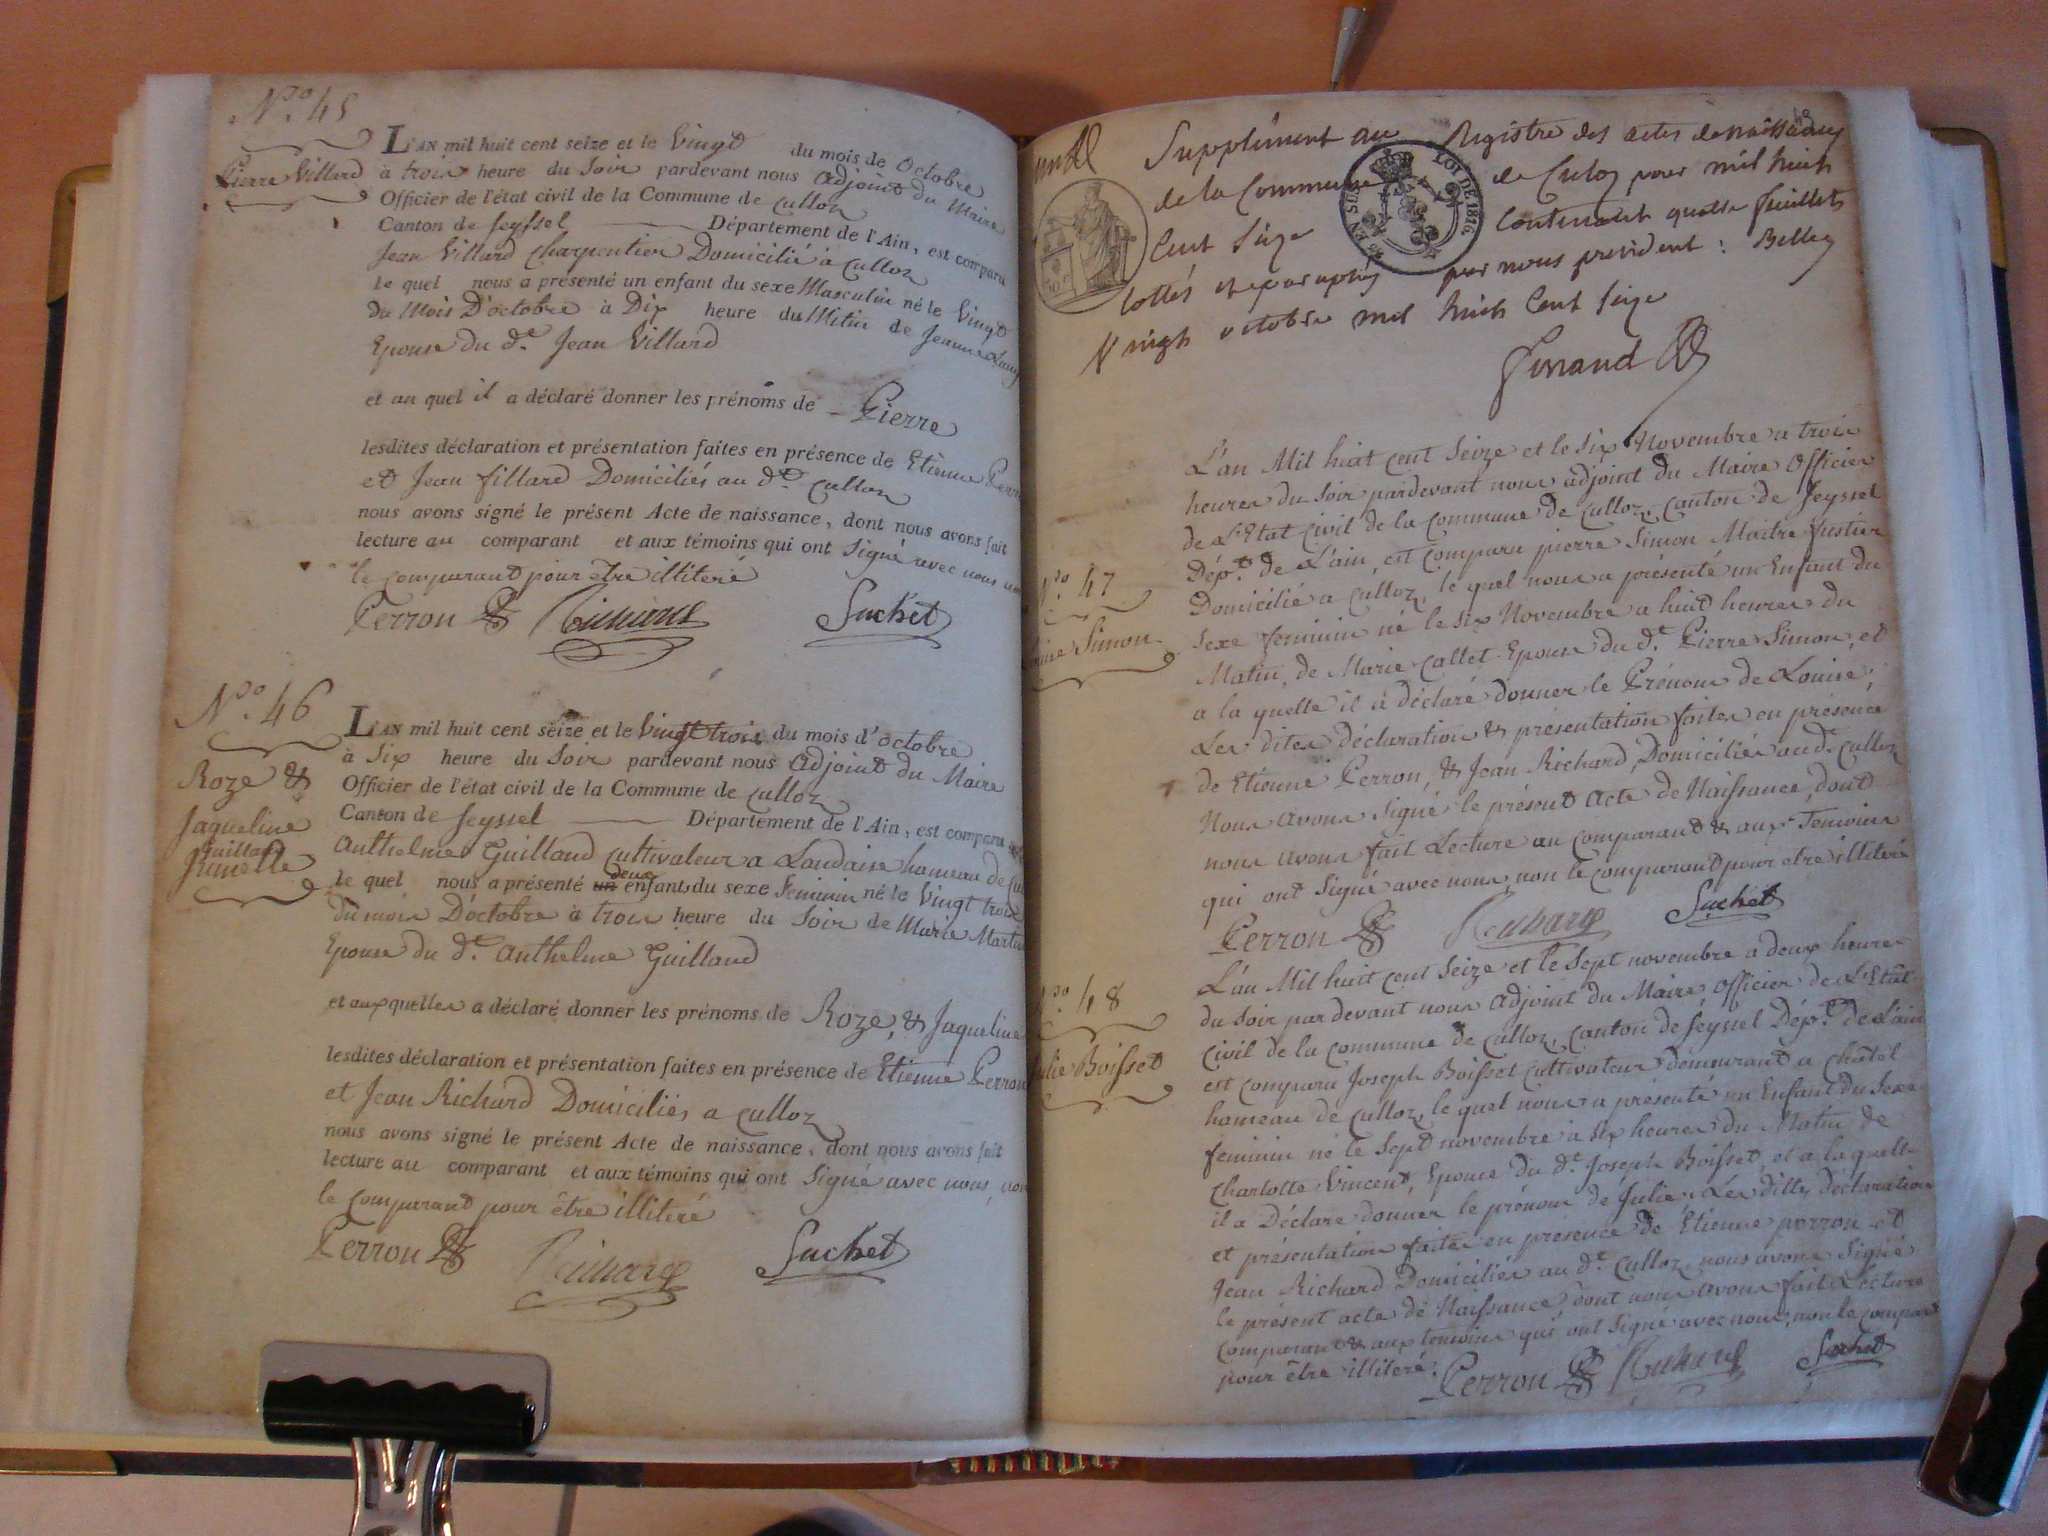 N.º 45
Pierre Villard
L'AN mil huit cent seize et le Vingt du mois de Octobre
à trois heure du Soir pardevant nous Adjoint du Maire
Officier de l'état civil de la Commune de Culloz
Canton de Seyssel Département de l'Ain, est comparu
Jean Villard Charpentier Domicilié à Culloz
le quel nous a présenté un enfant du sexe Masculin né le Vingt
du Mois D'octobre à Dix heure du Matin de Jeanne
Epouse du d.t Jean Villard
et au quel il a déclaré donner les prénoms de Pierre
lesdites déclaration et présentation faites en présence de Etienne
et Jean Domiciliés au d.t Culloz
nous avons signé le présent Acte de naissance, dont nous avons fait
lecture au comparant et aux témoins qui ont Signé avec nous non
le comparant pour etre illiteré
Perron Richard Suchet
N.º 46
Roze &
Jaqueline
Guilland
Jumelle
L'AN mil huit cent seize et le Vingt trois du mois d'octobre
à Six heure du Soir pardevant nous Adjoint du Maire
Officier de l'état civil de la Commune de Culloz
Canton de Seyssel Département de l'Ain, est comparu
Anthelme Guilland Cultivateur a Landaise hameau de
le quel nous a présenté un deux enfants du sexe Feminin né le Vingt trois
du mois D'octobre à trois heure du Soir de Marie
Epouse du d.t Anthelme Guilland
et auxquelles a déclaré donner les prénoms de Roze, & Jaqueline
lesdites déclaration et présentation faites en présence de Etienne Perron
et Jean Richard Domiciliés a Culloz
nous avons signé le présent Acte de naissance, dont nous avons fait
lecture au comparant et aux témoins qui ont Signé avec nous, non
le comparant pour être illiteré
Perron Richard Suchet
Supplément au Registre des actes de naissances
de la Commune de Culoz pour mil huit
Cent Seize Contenant quatre feuillets
cottés et paraphés par nous président : Belley
Vingt octobre mil huit Cent Seize
LOI DE 1816
N.º 47
Simon
L'an Mil huit cent Seize et le Six Novembre a trois
heures du Soir pardevant nous adjoint du Maire Officier
de L'Etat Civil de la Commune de Culloz, Canton de Seyssel
Dép.t de L'ain, est Comparu pierre Simon Maitre
Domicilié a Culloz, le quel nous a présenté un Enfant du
Sexe feminin né le Six Novembre a huit heures du
Matin, de Marie Callet Epouse du d.t Pierre Simon, et
a la quelle il a déclaré donner le Prénom de Louise;
Les dites déclaration & présentation faites en présence
de Etienne Perron, & Jean Richard, Domiciliés au d.t Culloz
Nous avons Signé le présent Acte de Naissance, dont
nous avons fait Lecture au Comparant & aux Temoins
qui ont Signé avec nous, non le Comparant pour etre illiteré
Perron Richard Suchet
N.º 48
Julie Boisset
L'an Mil huit cent Seize et le Sept novembre a deux heures
du Soir par devant nous Adjoint du Maire Officier de L'Etat
Civil de la Commune de Culloz, Canton de Seyssel Dép.t de L'ain
est Comparu Joseph Boisset Cultivateur demeurant a Châtel
hameau de Culloz, le quel nous a présenté un Enfant du Sexe
feminin né le Sept novembre a six heures du Matin de
Charlotte Vincent, Epouse du d.t Joseph Boisset, et a la quelle
il a Déclaré donner le prénom de Julie. Les dittes déclaration
et présentation faites en présence de Etienne perron et
Jean Richard Domiciliés au d.t Culloz, nous avons Signé
le présent acte de Naissance, dont nous avons fait Lecture
Comparant & aux temoins qui ont Signé avec nous, non le comparant
pour être illiteré. Perron Richard Suchet